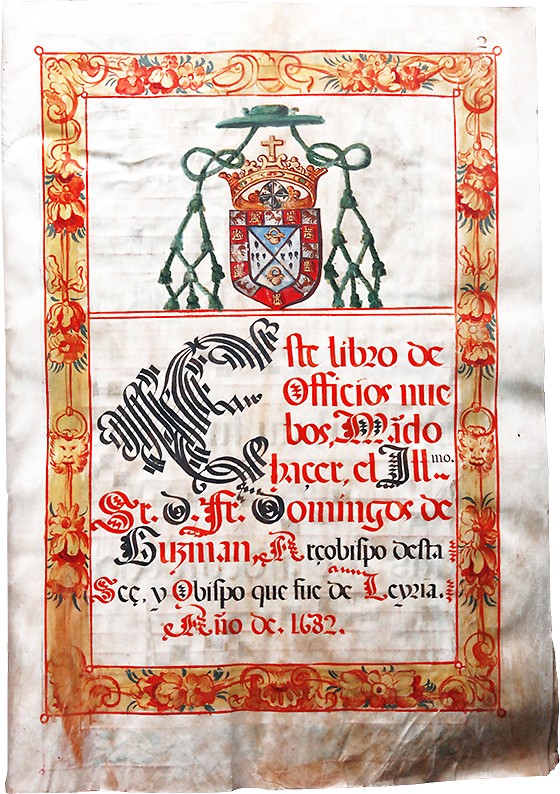 2
Este libro de
Officios nue
bos, Mãdo
haçer, el Ill.mo.
Sr. D. Fr. Domingos de
Guzman, Arçobispo desta
Seę, y Obispo que fue de Leyria.
Año de. 1682.